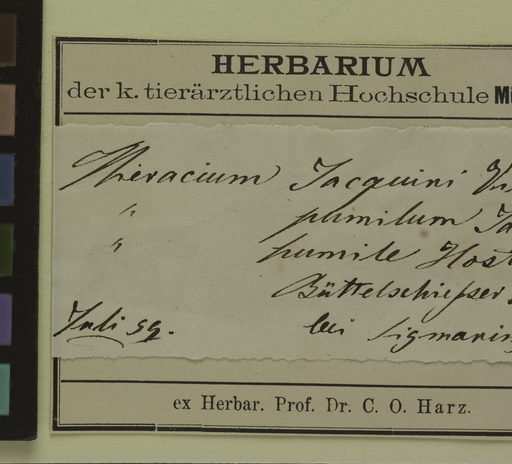 HERBARIUM
der k. tierärztlichen Hochschule Mü
Hieracium Jacquini Vi
" pumilum Ja
" humile Host
Büttelschießer
Juli 59. bei Sigmarin
ex Herbar. Prof. Dr. C. O. Harz.